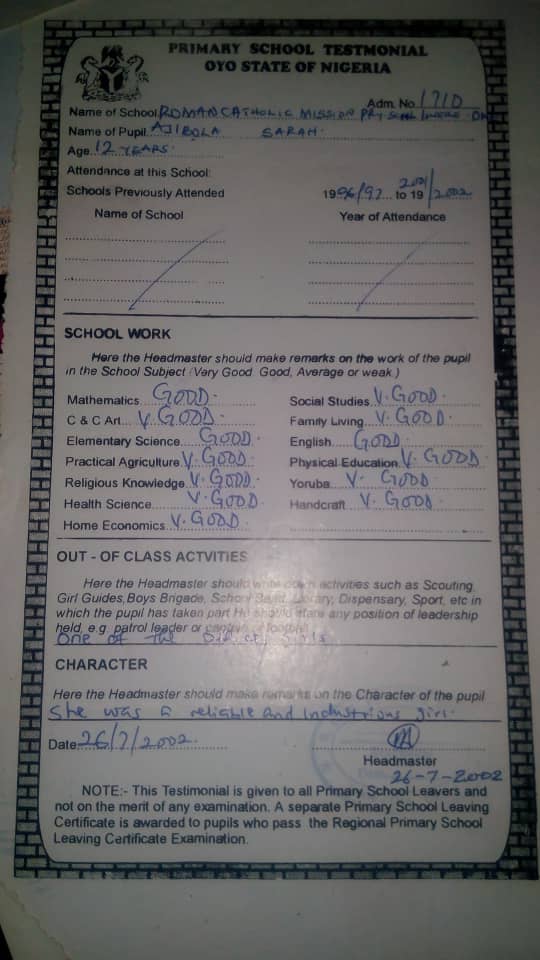 PRIMARY SCHOOL TESTMONIAL
OYO STATE OF NIGERIA
Adm. No 1710
Name of School ROMAN CATHOLIC MISSION PRY SCHOOL
Name of Pupil AJIBOLA SARAH.
Age 12 YEARS.
Attendance at this School:
Schools Previously Attended 1996/97 to 19 2001/2002
Name of School Year of Attendance
SCHOOL WORK
Here the Headmaster should make remarks on the work of the pupil
in the School Subject (Very Good. Good, Average or weak.)
Mathematics GOOD. Social Studies V. GOOD.
C & C Art V. GOOD. Family Living V. GOOD.
Elementary Science GOOD. English GOOD.
Practical Agriculture V. GOOD. Physical Education V. GOOD
Religious Knowledge V. GOOD. Yoruba V. GOOD.
Health Science V. GOOD. Handcraft V. GOOD.
Home Economics V. GOOD.
OUT - OF CLASS ACTVITIES
Here the Headmaster should write down activities such as Scouting,
Girl Guides, Boys Brigade, School Band, Library, Dispensary, Sport, etc in
which the pupil has taken part He should state any position of leadership
held, e.g. patrol leader or captain of football
One of the girls
CHARACTER
Here the Headmaster should make remarks on the Character of the pupil
She was a reliable and industrious girl.
Date 26/7/2002.
Headmaster
26-7-2002
NOTE:- This Testimonial is given to all Primary School Leavers and
not on the merit of any examination. A separate Primary School Leaving
Certificate is awarded to pupils who pass the Regional Primary School
Leaving Certificate Examination.